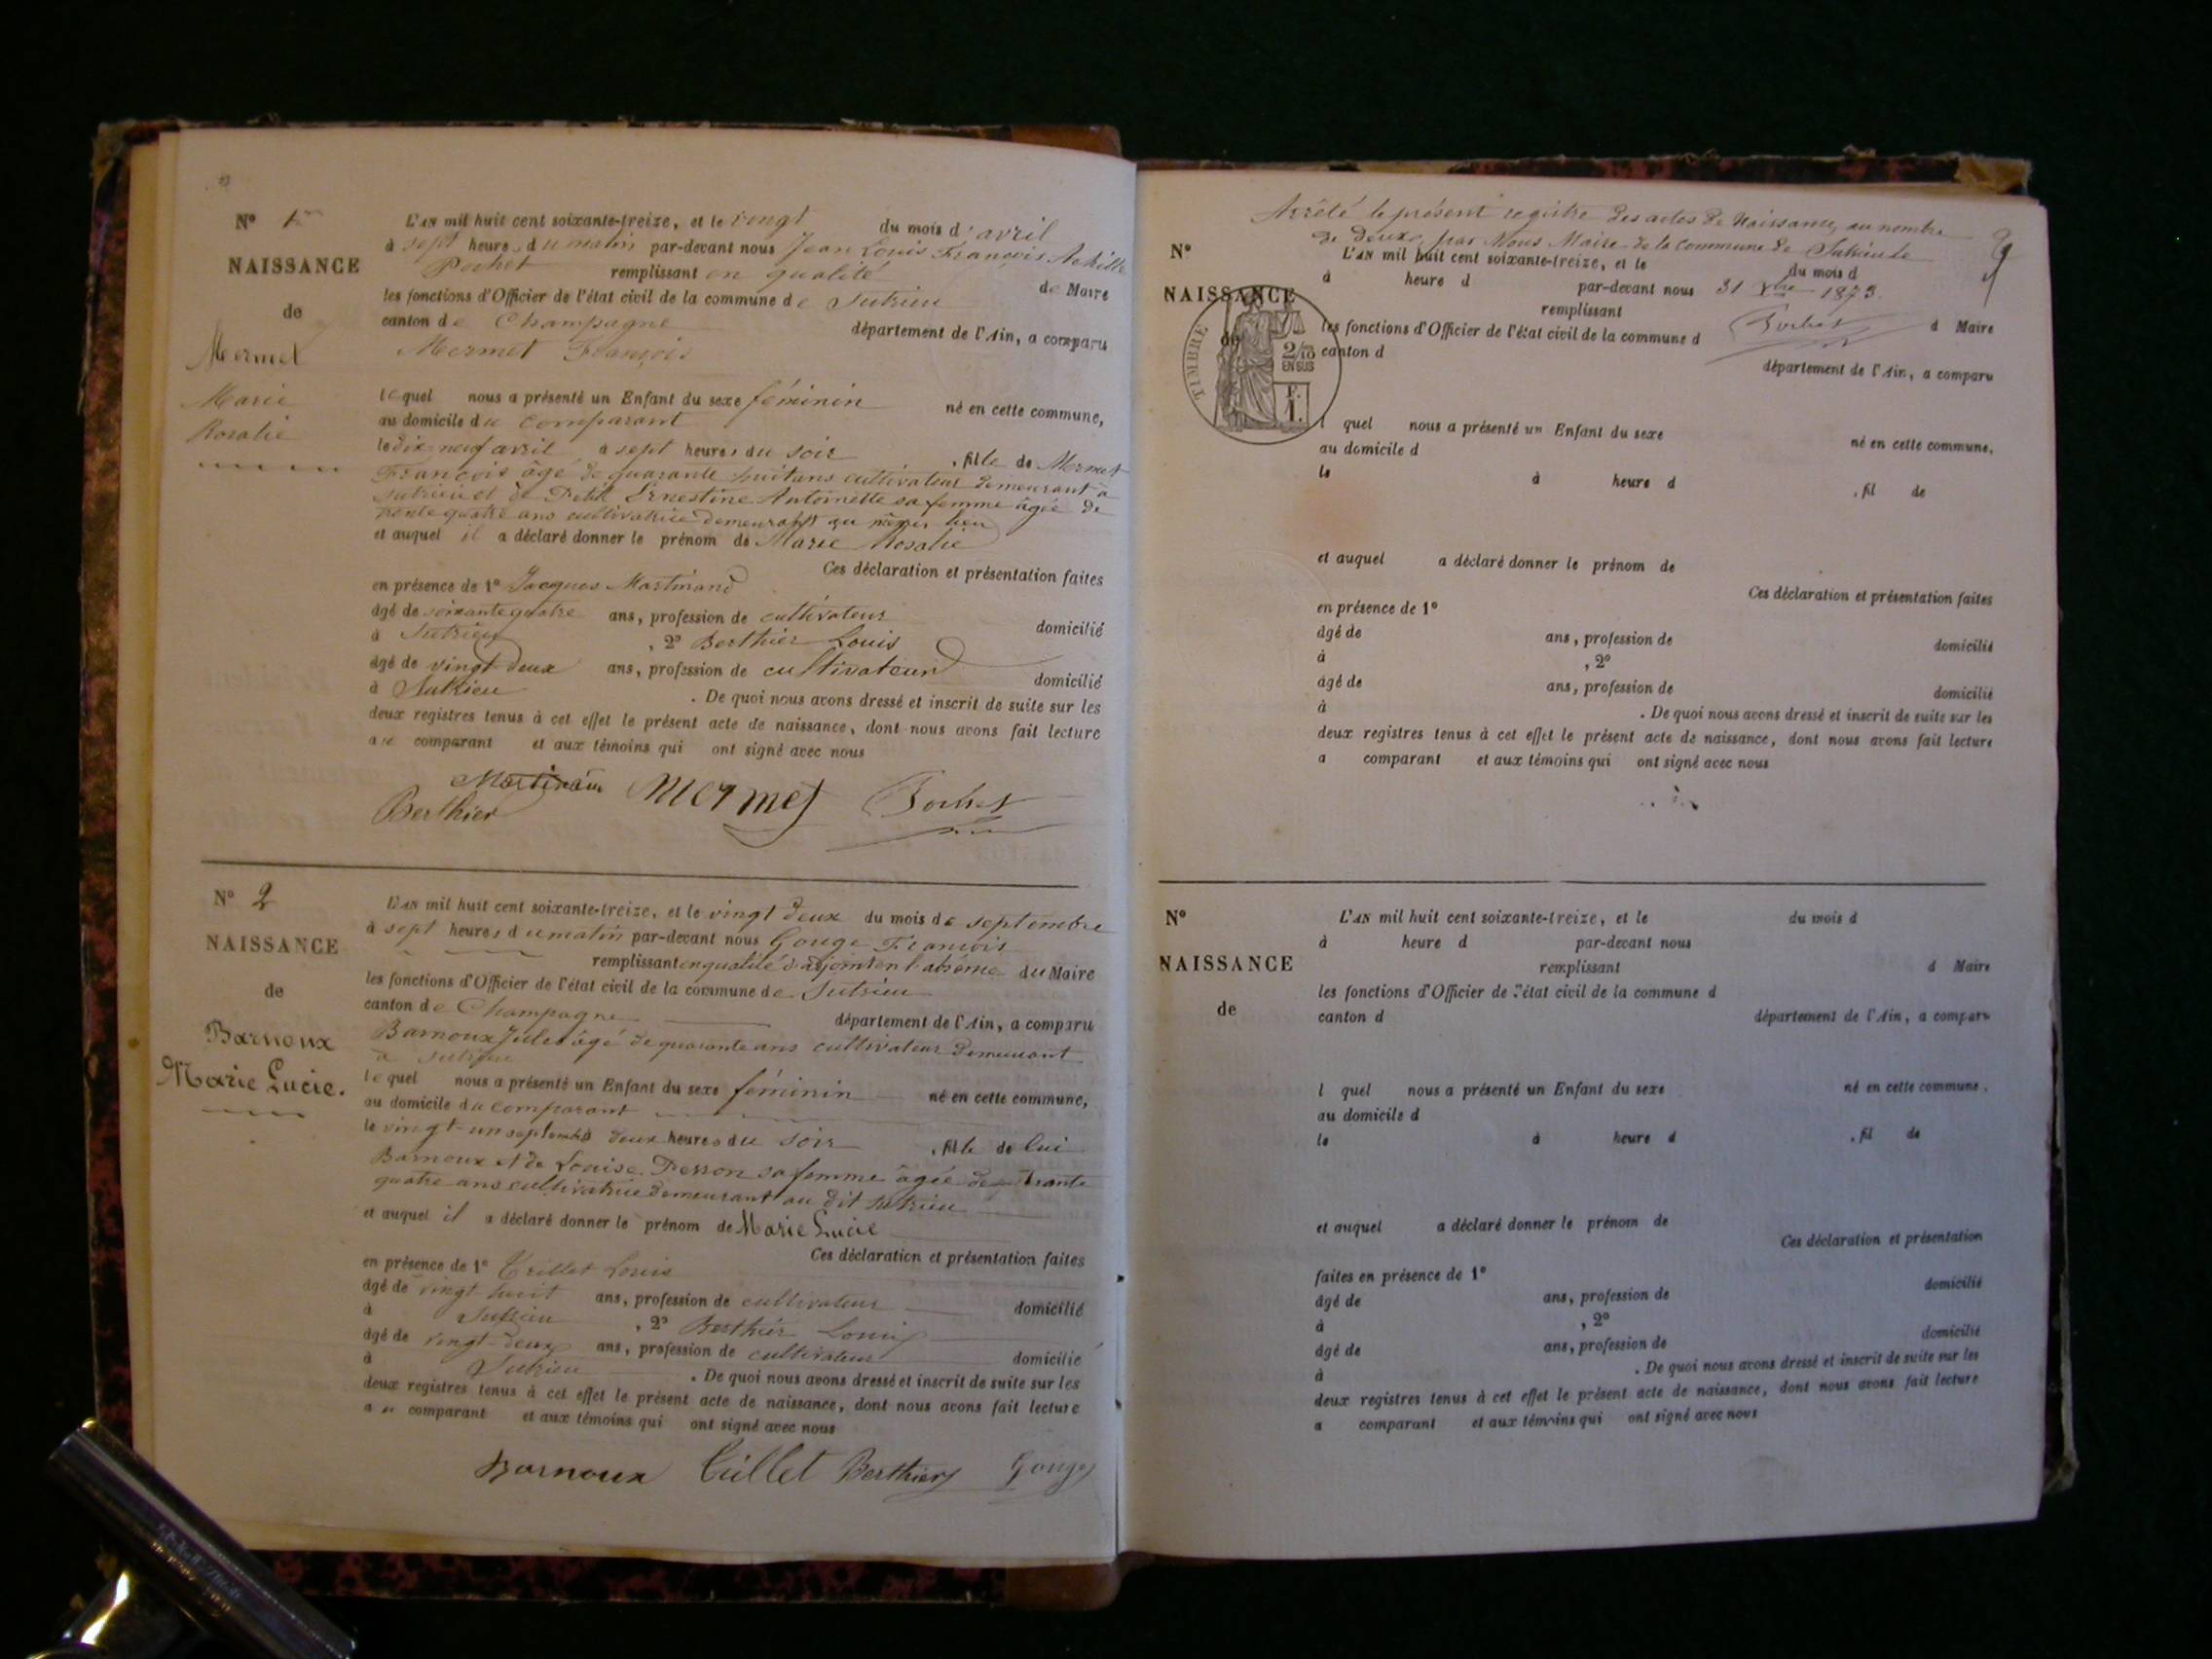 N° 1er
NAISSANCE
de
Mermet
Marie
Rosalie
L'AN mil huit cent soixante-treize, et le vingt du mois d'avril
à sept heures du matin par-devant nous Jean Louis François Achille
Pochet remplissant en qualité de Maire
les fonctions d'Officier de l'état civil de la commune de Sutrieu
canton de Champagne département de l'Ain, a comparu
Mermet François
lequel nous a présenté un Enfant du sexe féminin né en cette commune,
au domicile du comparant
le dix-neuf avril à sept heures du soir, fille de Mermet
François âgé de quarante huit ans cultivateur demeurant à
Sutrieu et de Petit Ernestine Antoinette sa femme âgée de
trente quatre ans cultivatrice demeurant au même lieu
et auquel il a déclaré donner le prénom de Marie Rosalie
Ces déclaration et présentation faites
en présence de 1° Jacques Martinand
âgé de soixante quatre ans, profession de cultivateur domicilié
à Sutrieu, 2° Berthier Louis
âgé de vingt deux ans, profession de cultivateur domicilié
à Sutrieu. De quoi nous avons dressé et inscrit de suite sur les
deux registres tenus à cet effet le présent acte de naissance, dont nous avons fait lecture
au comparant et aux témoins qui ont signé avec nous
Mermet Pochet
Berthier
N° 2
NAISSANCE
de
Barnoux
Marie Lucie.
L'AN mil huit cent soixante-treize, et le vingt deux du mois de septembre
à sept heures du matin par-devant nous Gouge François
remplissant en qualité d'adjoint en l'absence du Maire
les fonctions d'Officier de l'état civil de la commune de Sutrieu
canton de Champagne département de l'Ain, a comparu
Barnoux Jules âgé de quarante ans cultivateur demeurant
à Sutrieu
lequel nous a présenté un Enfant du sexe féminin né en cette commune,
au domicile du comparant
le vingt-un septembre à deux heures du soir, fille de lui
Barnoux et de Louise Perron sa femme âgée de trente
quatre ans cultivatrice demeurant au dit Sutrieu
et auquel il a déclaré donner le prénom de Marie Lucie
Ces déclaration et présentation faites
en présence de 1° Trillet Louis
âgé de vingt huit ans, profession de cultivateur domicilié
à Sutrieu, 2° Berthier Louis
âgé de vingt-deux ans, profession de cultivateur domicilié
à Sutrieu. De quoi nous avons dressé et inscrit de suite sur les
deux registres tenus à cet effet le présent acte de naissance, dont nous avons fait lecture
au comparant et aux témoins qui ont signé avec nous
Barnoux Trillet Berthier Gouge
Arrêté le présent registre des actes de Naissance, au nombre
de deux, par Nous Maire de la Commune de Sutrieu le
31 Xbre 1873.
Pochet
N°
NAISSANCE
de
TIMBRE
2/10
EN SUS
F.
1.
L'AN mil huit cent soixante-treize, et le du mois d
à heure d par-devant nous
remplissant d Maire
les fonctions d'Officier de l'état civil de la commune d
canton d département de l'Ain, a comparu
l quel nous a présenté un Enfant du sexe né en cette commune,
au domicile d
le à heure d , fil de
et auquel a déclaré donner le prénom de
Ces déclaration et présentation faites
en présence de 1°
âgé de ans, profession de domicilié
à , 2°
âgé de ans, profession de domicilié
à . De quoi nous avons dressé et inscrit de suite sur les
deux registres tenus à cet effet le présent acte de naissance, dont nous avons fait lecture
a comparant et aux témoins qui ont signé avec nous
N°
NAISSANCE
de
L'AN mil huit cent soixante-treize, et le du mois d
à heure d par-devant nous
remplissant d Maire
les fonctions d'Officier de l'état civil de la commune d
canton d département de l'Ain, a comparu
l quel nous a présenté un Enfant du sexe né en cette commune,
au domicile d
le à heure d , fil de
et auquel a déclaré donner le prénom de
Ces déclaration et présentation
faites en présence de 1°
âgé de ans, profession de domicilié
à , 2°
âgé de ans, profession de domicilié
à . De quoi nous avons dressé et inscrit de suite sur les
deux registres tenus à cet effet le présent acte de naissance, dont nous avons fait lecture
a comparant et aux témoins qui ont signé avec nous